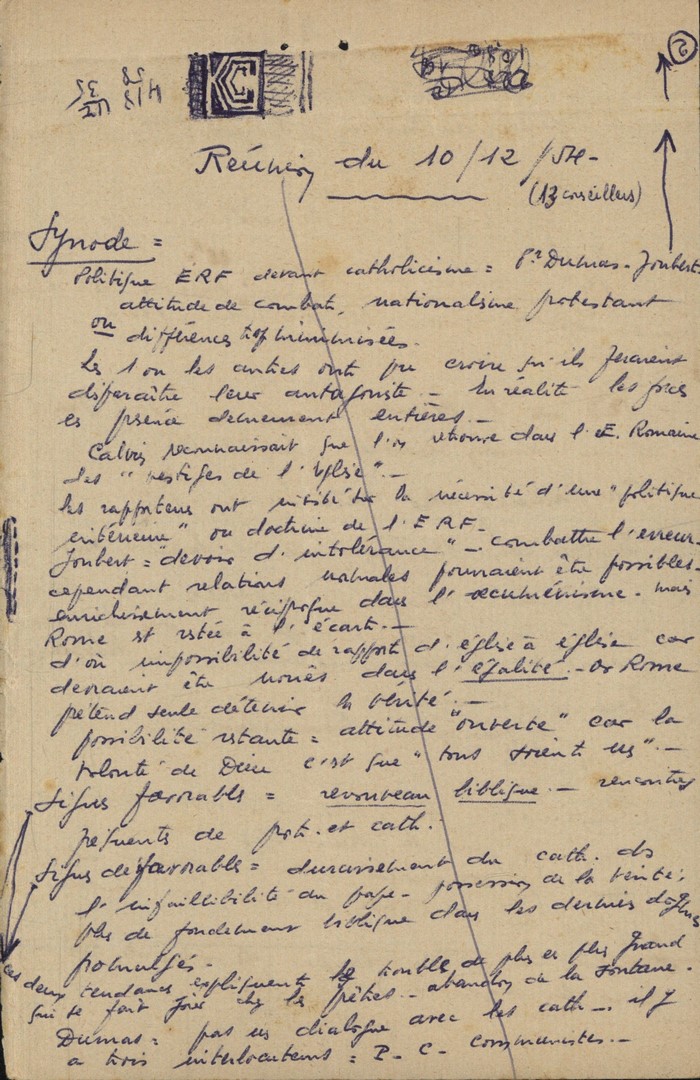 2
Réunion du 10/12/54-
(13 conseillers)
Synode =
Politique ERF devant catholicisme = Pr Dumas - Joubert.
attitude de combat, nationalisme protestant
ou différences trop minimisées.
Les 1 ou les autres ont pu croire qu'ils feraient
disparaître leur antagoniste - En réalité les forces
en présence demeurent entières. -
Calvin reconnaissait que l'on retrouve dans l'E. Romaine
des "vestiges de l'Eglise". -
les rapporteurs ont insisté sur la nécessité d'une "politique
extérieure" ou doctrine de l'ERF -
Joubert = "devoir d'intolérance" - combattre l'erreur.
cependant relations normales pourraient être possibles -
enrichissement réciproque dans l'oecuménisme - mais
Rome est restée à l'écart. -
d'où impossibilité de rapports d'église à église car
devraient être noués dans l'égalité. - Or Rome
prétend seule détenir la vérité. -
possibilité restante = attitude "ouverte" car la
volonté de Dieu c'est que "tous soient un". -
Signes favorables = renouveau biblique. - rencontres
fréquents de prot. et cath.
Signes défavorables = durcissement du cath. ds
l'infaillibilité du pape - possession de la vérité.
plus de fondement biblique dans les derniers dogmes
promulgués -
ces deux tendances expliquent le trouble de plus en plus grand
qui se fait jour chez les prêtres - abandon de la soutane.
Dumas = pas un dialogue avec les cath -. il y
a trois interlocuteurs = P - C - communistes. -